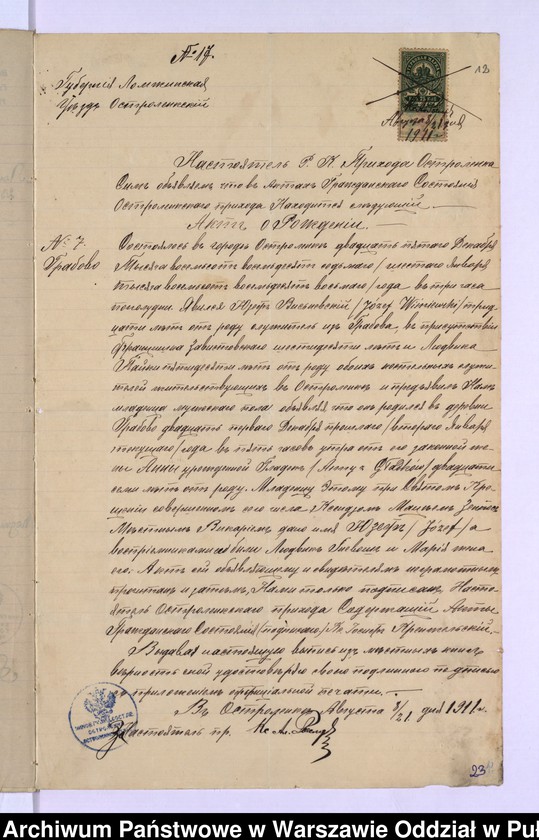 № 17.
12
Губернія Ломжинская
Уѣздъ Остроленкскій
Августа 8/21 дня
1911 г.
Настоятель Р. К. Прихода Остроленка
Симъ объявляетъ что въ Актахъ Гражданскаго Состоянія
Остроленкскаго прихода находится слѣдующій
Актъ о Рожденіи.
№ 7.
Грабово
Состоялось въ городѣ Остроленкѣ двадцать пятаго Декабря
Тысяча восемьсотъ восемьдесятъ седьмаго /шестаго Января
тысяча восемьсотъ восемьдесятъ восьмаго/ года въ три часа
пополудни. Явился Юзефъ Висьневскій /Józef Wiśniewski/ трид-
цати лѣтъ отъ роду служитель изъ Грабова, въ присутствіи
Францишка шестидесяти лѣтъ и Людвика
пятидесяти лѣтъ отъ роду обоихъ
жительствующихъ въ Остроленкѣ и предъявилъ Намъ
младенца мужескаго пола объявляя что онъ родился въ деревнѣ
Грабово двадцать перваго Декабря прошлаго /втораго Января
текущаго/ года въ пять часовъ утра отъ его законной же-
ны Анны урожденной двадцати
семи лѣтъ отъ роду. Младенцу этому при Святомъ Кре-
щеніи совершенномъ сего числа Ксендзомъ
Мѣстнымъ Викаріемъ дано имя Юзефъ /Józef/ а
воспріемниками его были Людвикъ и Марія жена
его. Актъ сей объявляющему и свидѣтелямъ неграмотнымъ
прочитанъ и затѣмъ Нами только подписанъ. Насто-
ятель Остроленкскаго прихода Содержащій Акты
Гражданскаго Состоянія /подписалъ/ Кс.
Выдавая настоящую выпись изъ мѣстныхъ книгъ
вѣрность оной удостовѣряю своею подлинною подписью
и приложеніемъ оффиціальной печати.
Въ Остроленкѣ Августа 8/21 дня 1911 г.
Настоятель пр.
23
Archiwum Państwowe w Warszawie Oddział w Puł